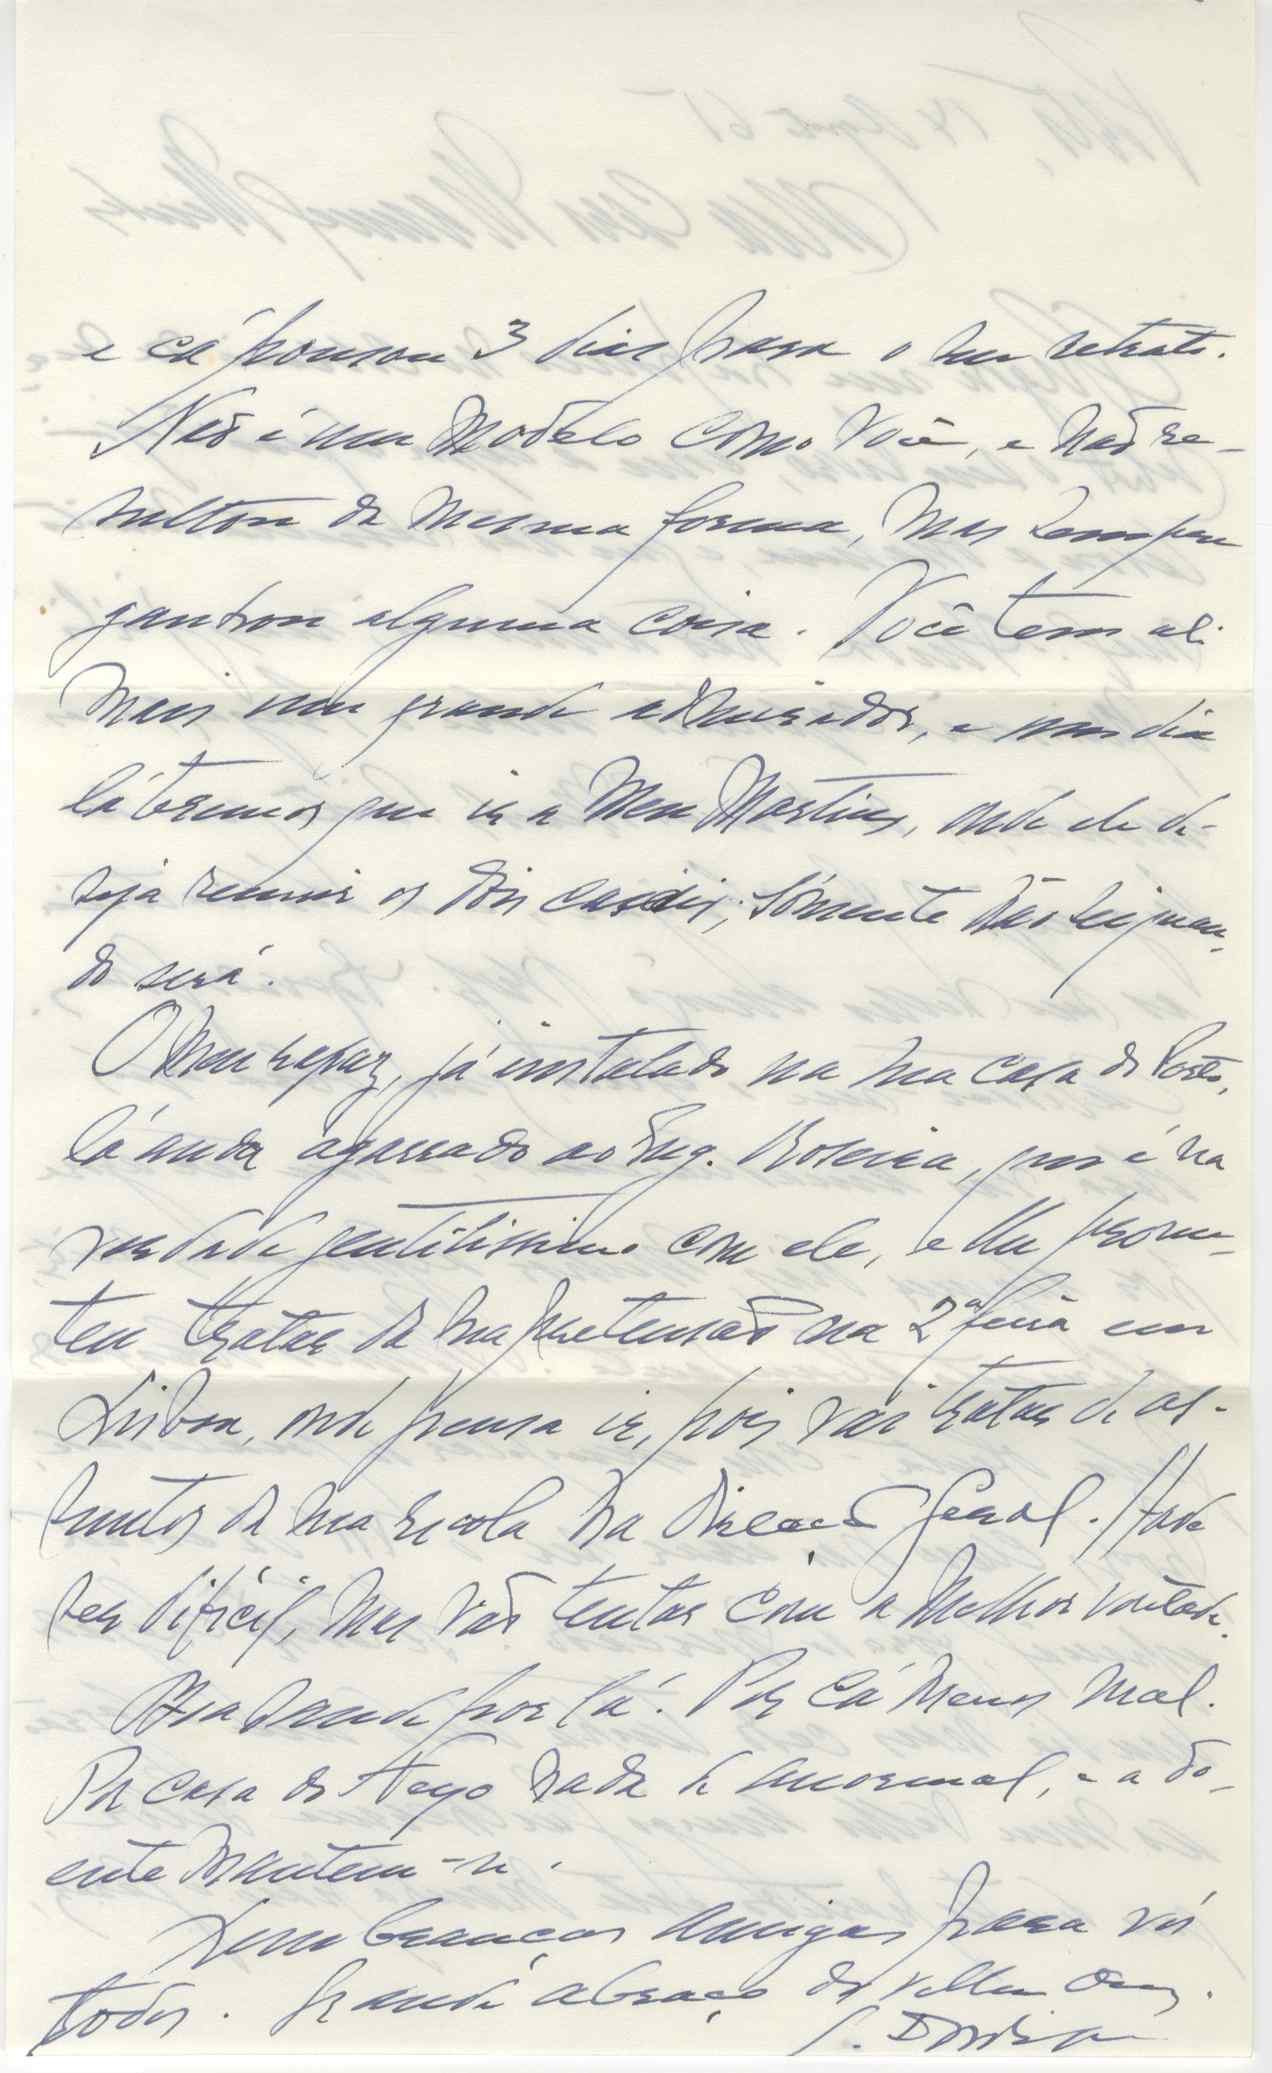 e cá pousou 3 dias para o seu retrato.
Não é um modelo como você, e não re-
sultou da mesma forma, mas sempre
ganhou alguma coisa. Você tem ali
mais um grande admirador, e um dia
lá teremos que ir a Mem Martins, onde ele de-
seja reunir os dois casais; sómente não sei quan-
do será.
O meu rapaz, já instalado na sua casa do Porto,
lá anda agarrado ao Eng. Roseira, que é na
verdade gentilissimo com ele, e lhe prome-
teu tratar da sua pretensão na 2ª feira em
Lisboa, onde pensa ir, pois vai tratar de as-
suntos da sua escola na Direcção Geral. Há de
ser difícil, mas vão tentar com a melhor vontade.
Boa saude por lá. Por cá menos mal.
Por casa do nada de anormal, e a do-
ente mantem-se.
Lembranças amigas para vós
todos. Grande abraço do velho